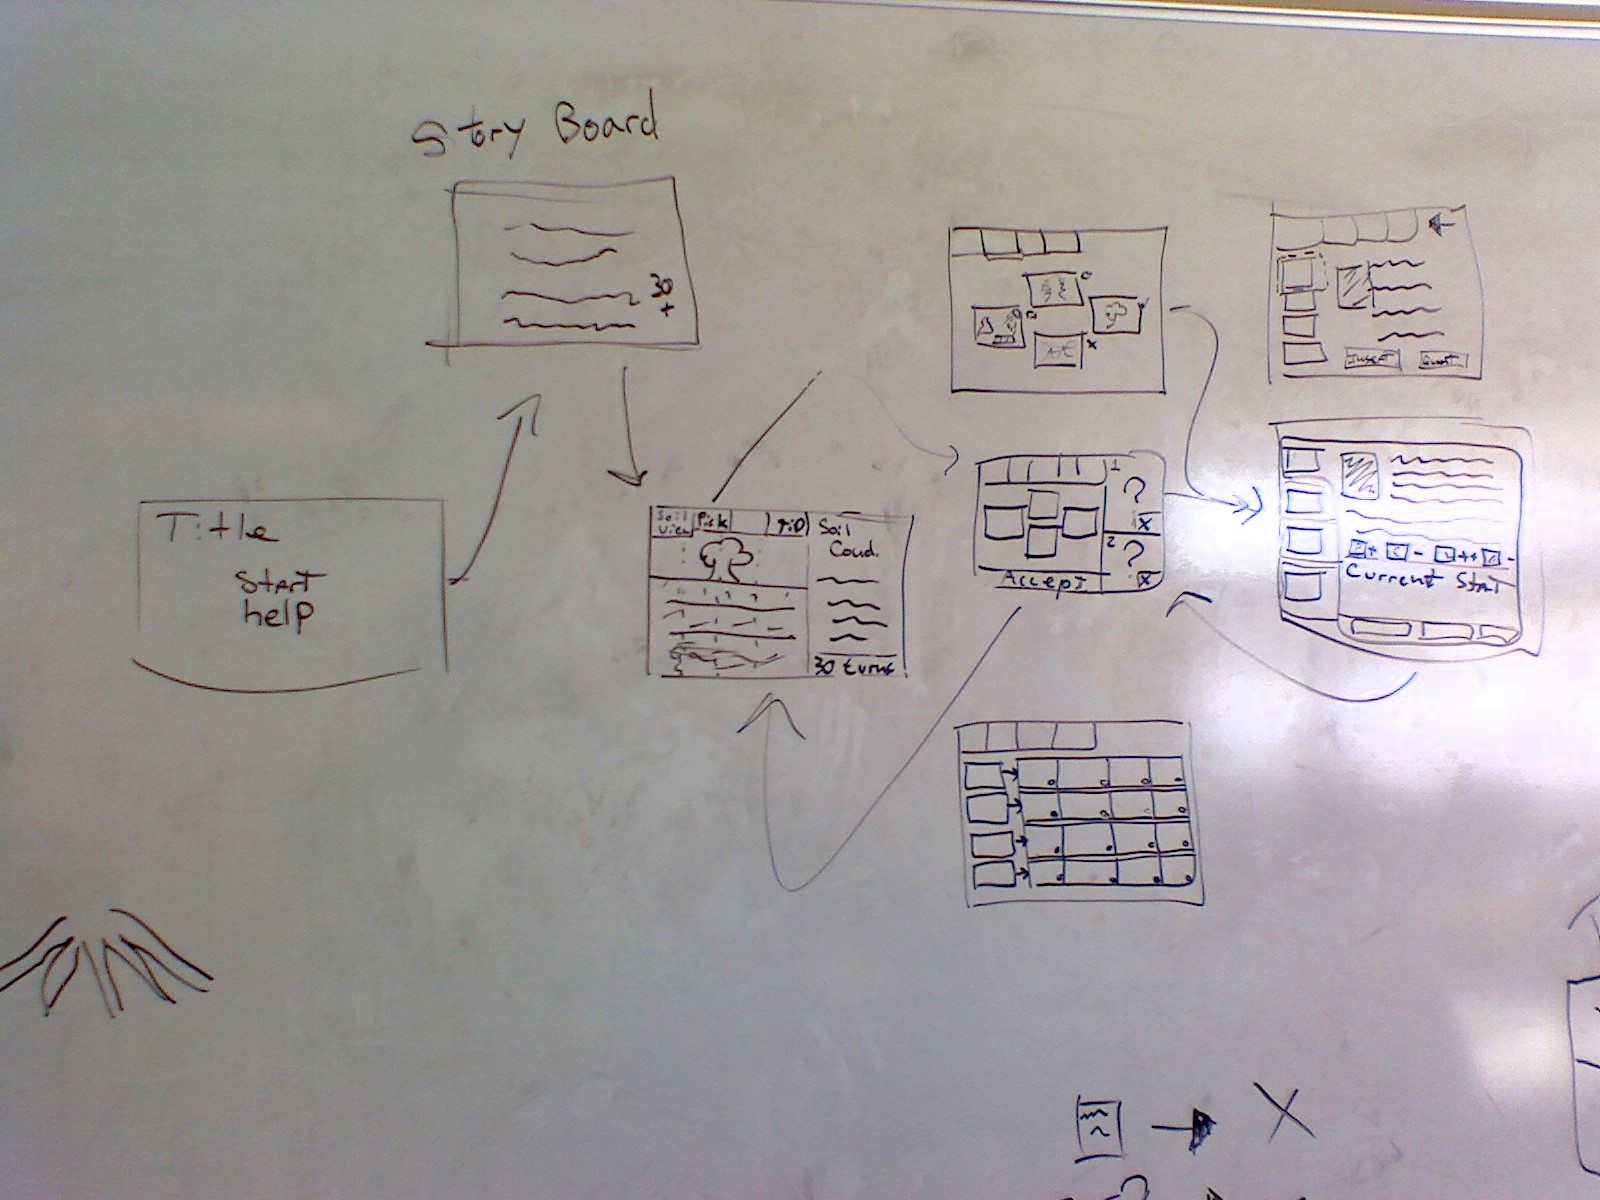 Story Board
30
+
Title
Start
help
Soil
View
Pick
Soil
Cond.
30 turns
1
?
X
2
?
X
Accept
Insert
Current Stat